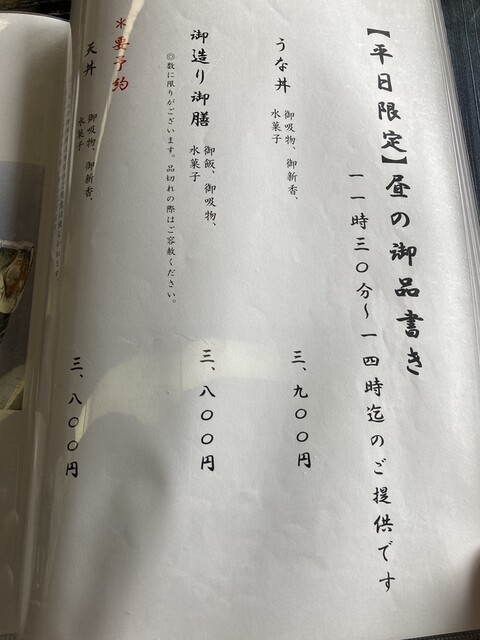 【平日限定】昼の御品書き
一一時三〇分〜一四時迄のご提供です
うな丼
御吸物、御新香、
水菓子
三、九〇〇円
御造り御膳
御飯、御吸物、
水菓子
三、八〇〇円
◎数に限りがございます。品切れの際はご容赦ください。
*要予約
天丼
御吸物、御新香、
水菓子
三、八〇〇円